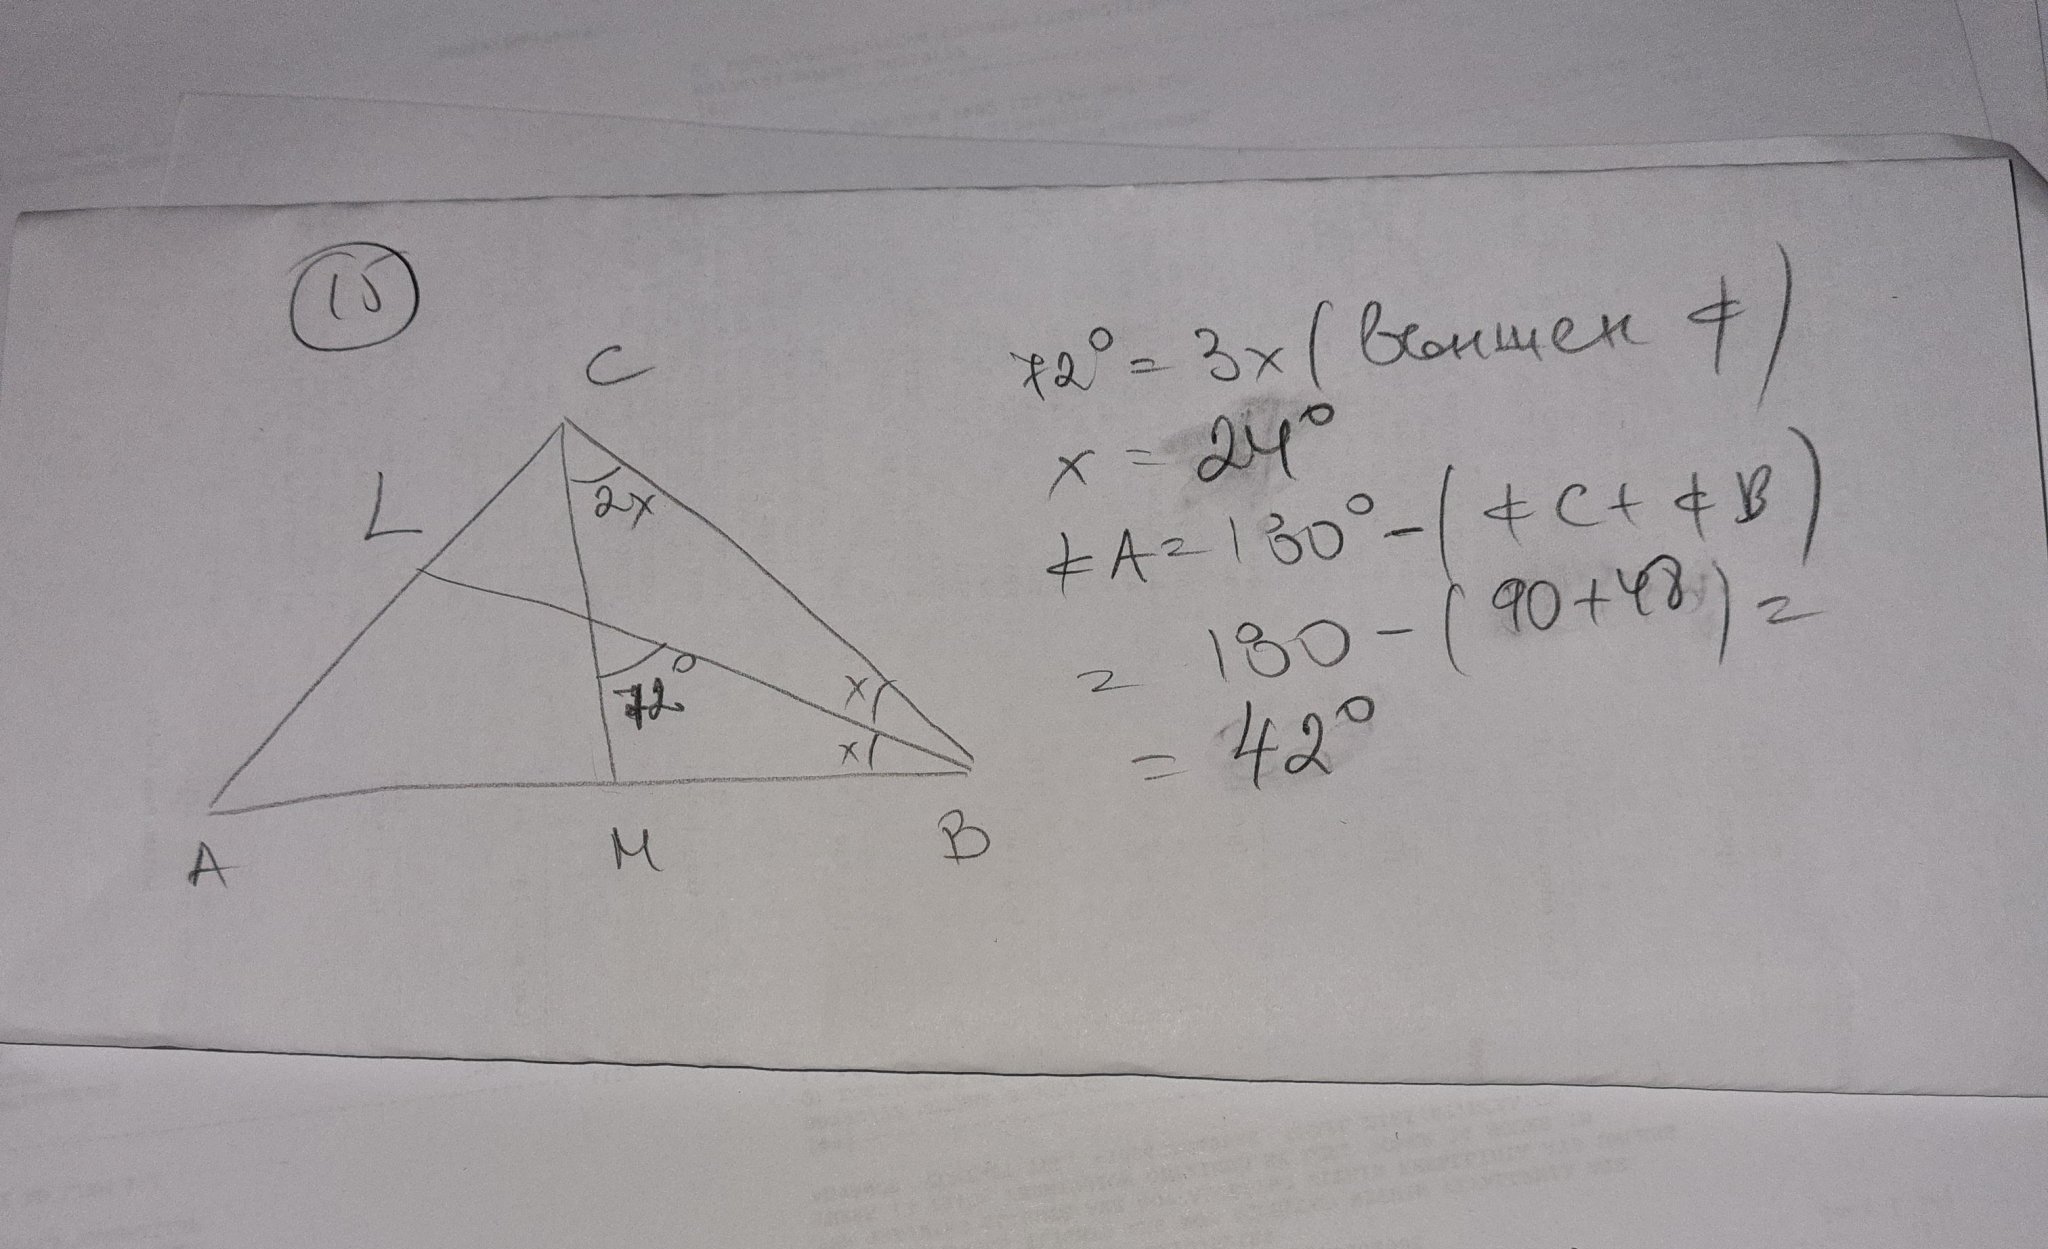 15
C
L
2x
72°
x
x
A
M
B
72° = 3x (външен ∢)
x = 24°
∢A = 180° - (∢C + ∢B)
= 180 - (90 + 48) =
= 42°